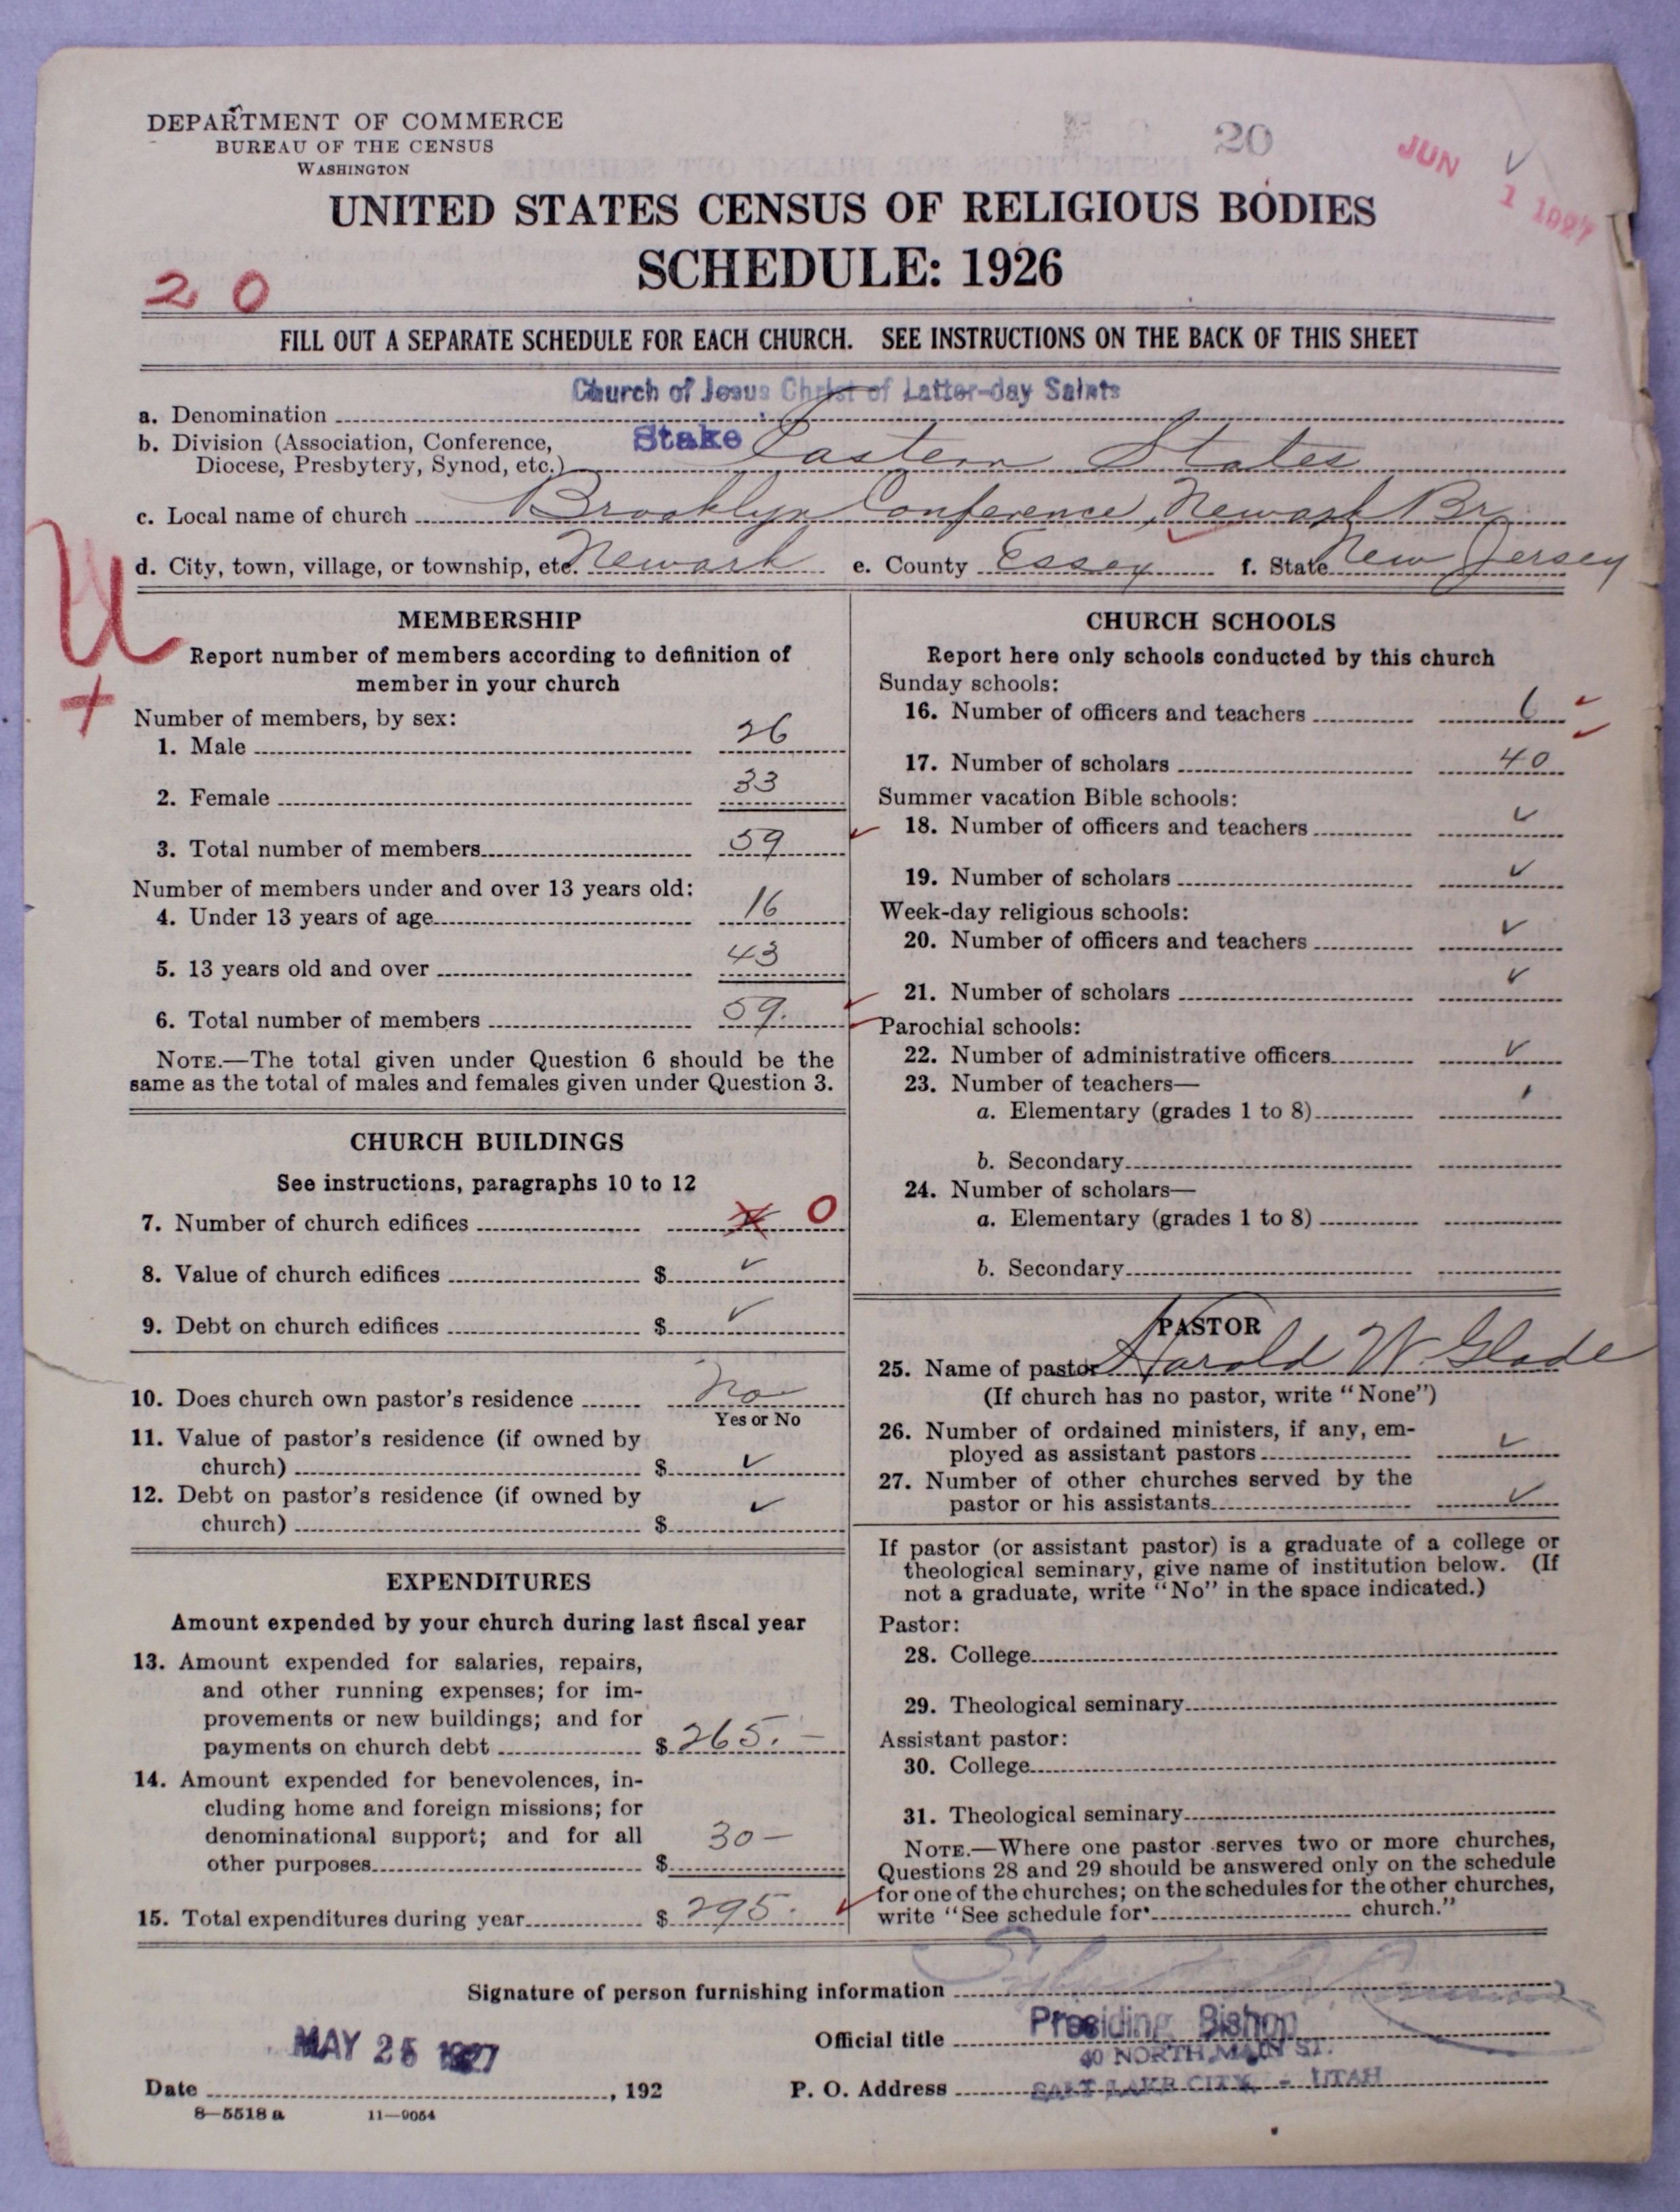 DEPARTMENT OF COMMERCE
BUREAU OF THE CENSUS
WASHINGTON
20
JUN 1 1927
UNITED STATES CENSUS OF RELIGIOUS BODIES
SCHEDULE: 1926
20
FILL OUT A SEPARATE SCHEDULE FOR EACH CHURCH. SEE INSTRUCTIONS ON THE BACK OF THIS SHEET
a. Denomination Church of Jesus Christ of Latter-day Saints
b. Division (Association, Conference, Diocese, Presbytery, Synod, etc.) Stake Eastern States
c. Local name of church Brooklyn Conference, Newark Br.
d. City, town, village, or township, etc. Newark e. County Essex f. State New Jersey
MEMBERSHIP
Report number of members according to definition of
member in your church
Number of members, by sex:
1. Male 26
2. Female 33
3. Total number of members 59
Number of members under and over 13 years old:
4. Under 13 years of age 16
5. 13 years old and over 43
6. Total number of members 59.
NOTE.—The total given under Question 6 should be the
same as the total of males and females given under Question 3.
CHURCH BUILDINGS
See instructions, paragraphs 10 to 12
7. Number of church edifices 0
8. Value of church edifices $ ✓
9. Debt on church edifices $ ✓
10. Does church own pastor's residence No
Yes or No
11. Value of pastor's residence (if owned by
church) $ ✓
12. Debt on pastor's residence (if owned by
church) $ ✓
EXPENDITURES
Amount expended by your church during last fiscal year
13. Amount expended for salaries, repairs,
and other running expenses; for im-
provements or new buildings; and for
payments on church debt $ 265.—
14. Amount expended for benevolences, in-
cluding home and foreign missions; for
denominational support; and for all
other purposes $ 30—
15. Total expenditures during year $ 295.
CHURCH SCHOOLS
Report here only schools conducted by this church
Sunday schools:
16. Number of officers and teachers 6
17. Number of scholars 40
Summer vacation Bible schools:
18. Number of officers and teachers ✓
19. Number of scholars ✓
Week-day religious schools:
20. Number of officers and teachers ✓
21. Number of scholars ✓
Parochial schools:
22. Number of administrative officers ✓
23. Number of teachers—
a. Elementary (grades 1 to 8)
b. Secondary
24. Number of scholars—
a. Elementary (grades 1 to 8)
b. Secondary
PASTOR
25. Name of pastor Harold W. Glade
(If church has no pastor, write "None")
26. Number of ordained ministers, if any, em-
ployed as assistant pastors ✓
27. Number of other churches served by the
pastor or his assistants ✓
If pastor (or assistant pastor) is a graduate of a college or
theological seminary, give name of institution below. (If
not a graduate, write "No" in the space indicated.)
Pastor:
28. College
29. Theological seminary
Assistant pastor:
30. College
31. Theological seminary
NOTE.—Where one pastor serves two or more churches,
Questions 28 and 29 should be answered only on the schedule
for one of the churches; on the schedules for the other churches,
write "See schedule for church."
Signature of person furnishing information
Official title Presiding Bishop
40 NORTH MAIN ST.
P. O. Address SALT LAKE CITY, - UTAH
MAY 25 1927
Date , 192
8—5518 a 11—9054